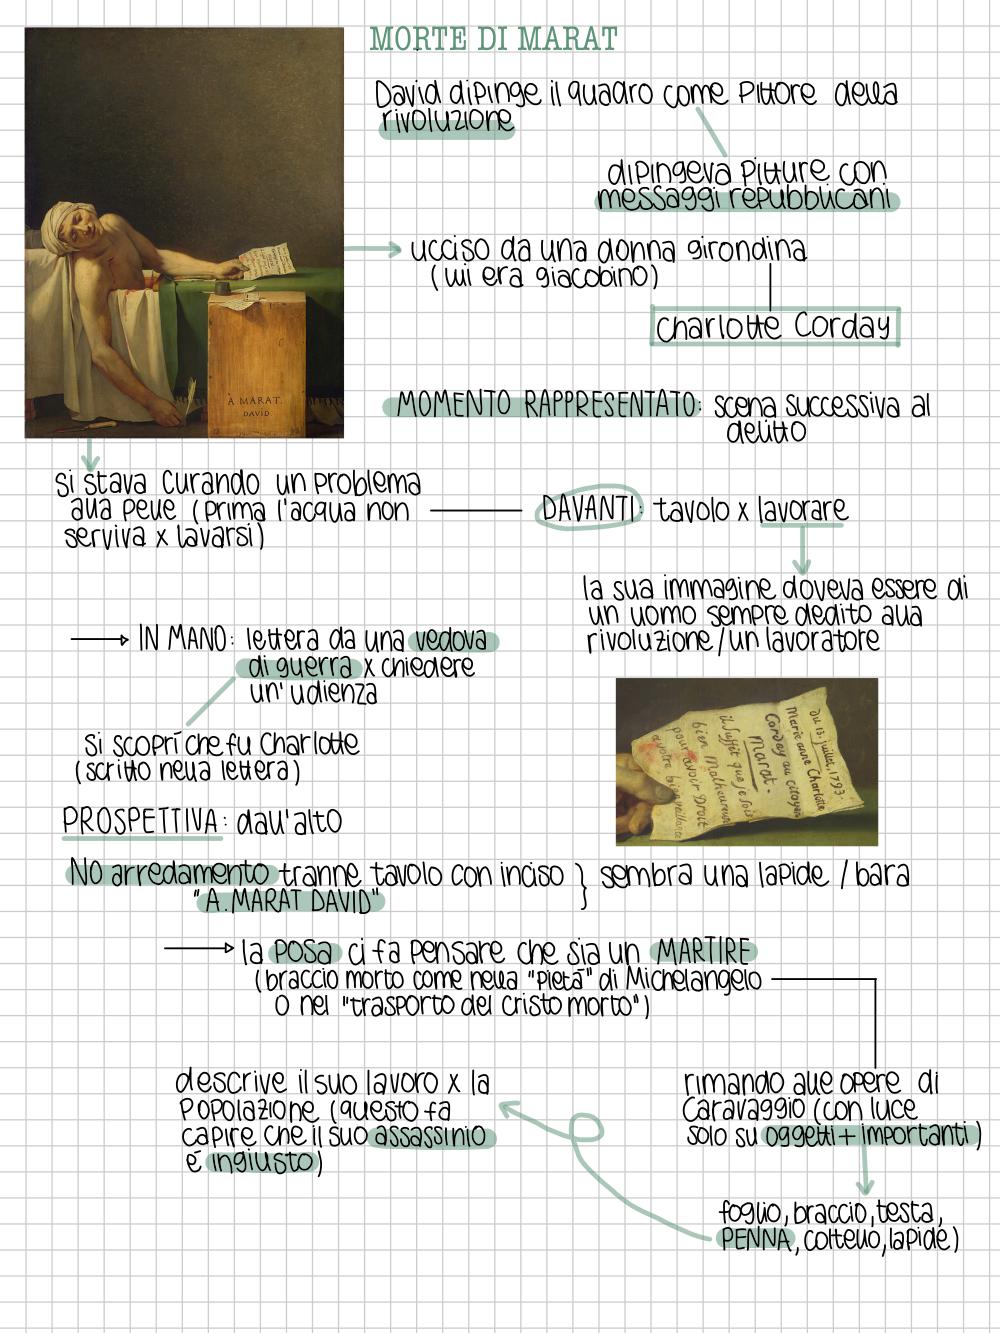 MORTE DI MARAT
David dipinge il quadro come Pittore della
rivoluzione
dipingeva Pitture con
messaggi repubblicani
ucciso da una donna girondina
(lui era giacobino)
Charlotte Corday
À MARAT.
DAVID
MOMENTO RAPPRESENTATO: scena successiva al
delitto
si stava curando un problema
alla pelle (prima l'acqua non
serviva x lavarsi)
DAVANTI: tavolo x lavorare
la sua immagine doveva essere di
un uomo sempre dedito alla
rivoluzione/un lavoratore
IN MANO: lettera da una vedova
di guerra x chiedere
un'udienza
si scoprí che fu Charlotte
(scritto nella lettera)
du 13. juillet, 1793.
Marie anne Charlotte
Corday au citoyen
Marat.
il suffit que je sois
bien Malheureuse
pour avoir Droit
a votre bienveillance
PROSPETTIVA: dall'alto
NO arredamento tranne tavolo con inciso } sembra una lapide / bara
"A. MARAT DAVID"
la POSA ci fa pensare che sia un MARTIRE
(braccio morto come nella "Pietá" di Michelangelo
O nel "trasporto del cristo morto")
rimando alle opere di
Caravaggio (con luce
solo su oggetti + importanti)
foglio, braccio, testa,
PENNA, coltello, lapide)
descrive il suo lavoro x la
POPOLAZIONE (questo fa
capire che il suo assassinio
é ingiusto)